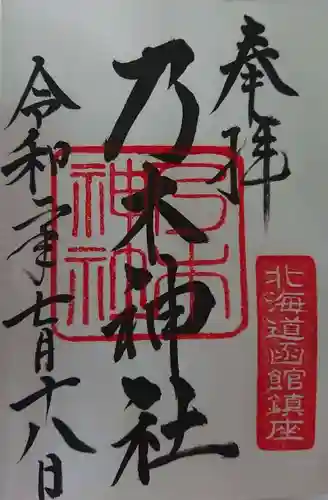 奉拝
北海道函館鎮座
乃木神社
乃木神社
令和二年七月十八日